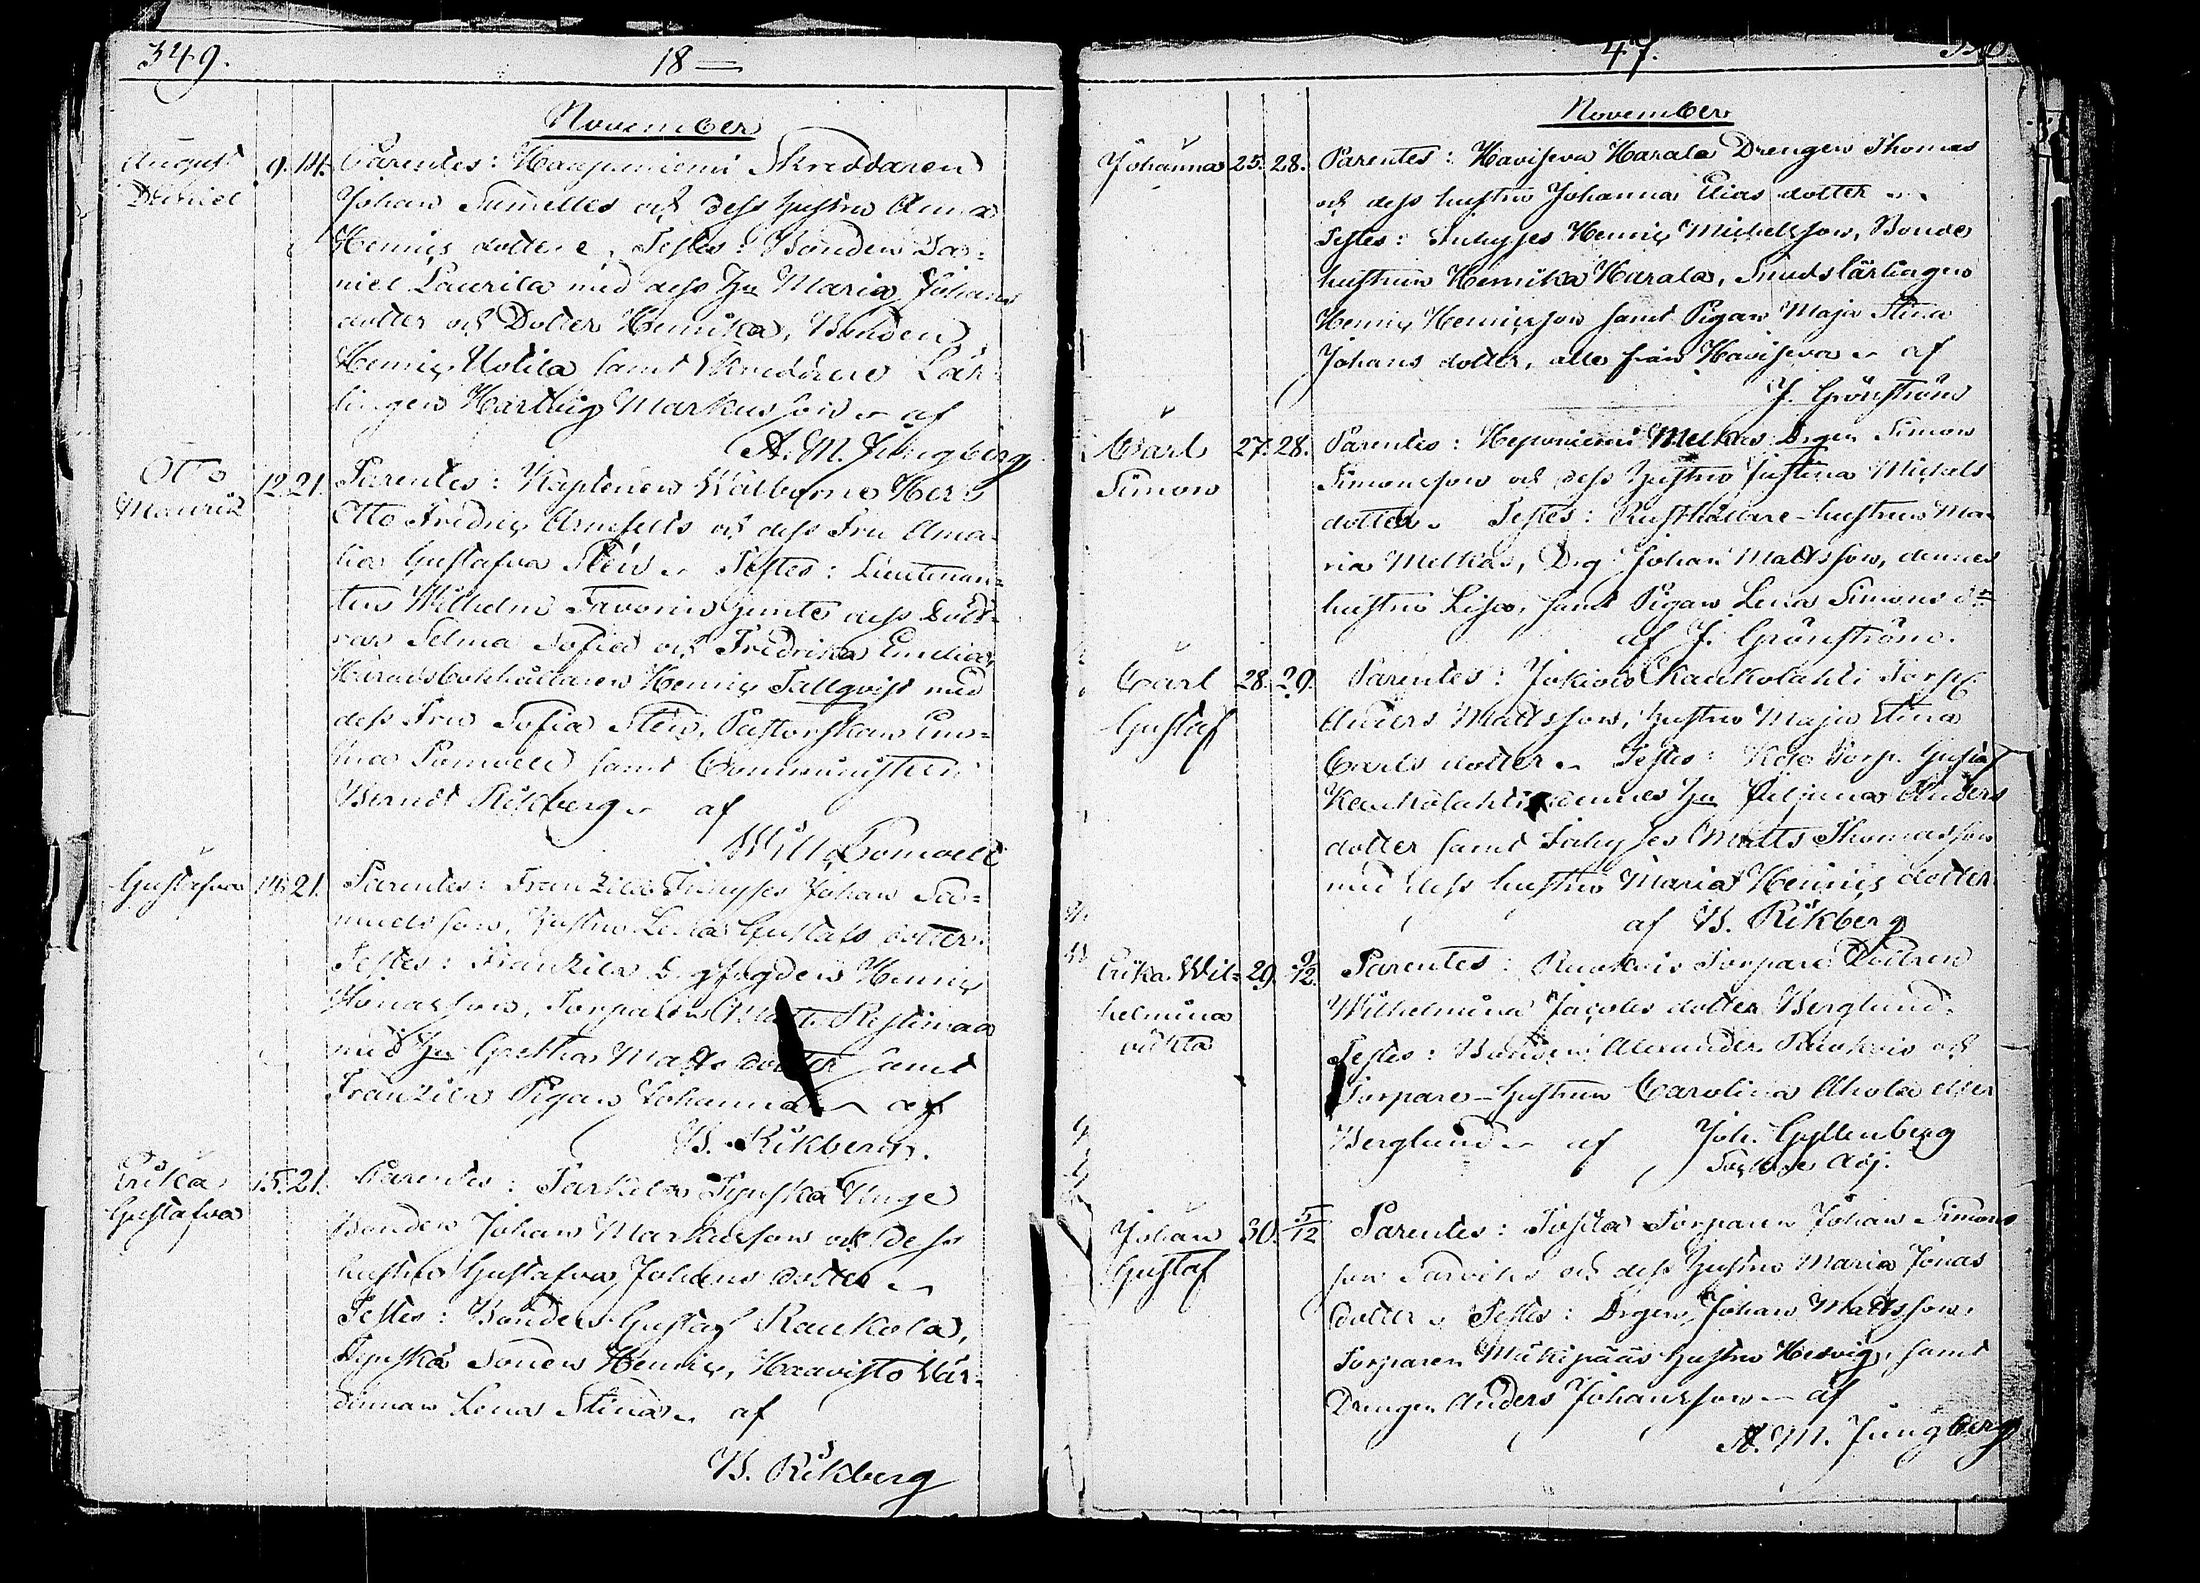 349.
18—
November
August
Daniel
9. 14. Parentes: Haapaniemi Skreddaren
Johan Sumelles och dess hustru Anna
Henrics dotter. Testes: Bonden Da=
niel Laurila med dess Hu Maria Johans
dotter och Dotter Henrika, Bonden
Henric Uotila samt Skreddare Lär-
lingen Hartvig Markusson af
A. M. Jungberg
Otto
Maurik
12. 21. Parentes: Kaptenen Wälborne Herr
Otto Fredric Armfelt och dess Fru Ama-
lia Gustafva Stén. Testes: Lieutenan-
ten Wilhelm Favorin jemte dess Dött-
rar Selma Sofia och Fredrika Emilia,
Häradsbokhållaren Henric Tallqvist med
dess Fru Sofia Stén, Pastorskan
Ponvell samt Communisten
Berndt Rikberg af
Will. Ponvell
Gustafva 14. 21. Parentes: Franzila Inhyses Johan Sa=
muelsson, hustru Lena Gustafs dotter.
Testes: Franzila Henric
Jonasson, Torparen Matts Ristimaa
med Hu Gretha Matts dotter samt
Franzila Pigan Johanna af
B. Rikberg.
Erika
Gustafva
15. 21. Parentes: Sarkila Tyyskä Unge
Bonden Johan Markusson och dess
hustru Gustafva Johans dotter
Testes: Bonden Gustaf Raukola,
Tyyskä Sonen Henric, Haavisto Vär-
dinnan Lena Stina af
B. Rikberg
47.
November
Johanna 25. 28. Parentes: Haviseva Harala Drengen Thomas
och dess hustru Johanna Elias dotter
Testes: Inhyses Henric Michelsson, Bonde
hustrun Henrika Harala, Smedslärlingen
Henric Henricsson samt Pigan Maja Stina
Johans dotter, alla från Haviseva af
J. Grönström
Carl
Simon
27. 28. Parentes: Heponiemi Melkas Drgen Simon
Simonsson och dess hustru Justina Michels
dotter. Testes: Rusthållare-hustrun Ma-
ria Melkas, Drg Johan Mattsson, dennes
hustru Lisa, samt Pigan Lena Simons dr
af J. Grönström.
Carl
Gustaf
28. 29. Parentes: Jokiois Kaukolahti Torp.
Anders Mattsson, hustru Maja Stina
Carls dotter. Testes: Torp. Gustaf
Kaukolahti dennes Hu Anders
dotter samt Inhyses Matts Thomasson
med dess hustru Maria Henrics dotter
af B. Rikberg
Erika Wil=
helmina
oäkta
29. 9/12. Parentes: Torpare Dottren
Wilhelmina Jacobs dotter Berglund.
Testes: Bonden Alexander och
Torpare-hustrun Carolina Ahola eller
Berglund af Joh. Gyllenberg
Adj.
Johan
Gustaf
30. 5/12 Parentes: Torparen Johan Simons
son Sarvilas och dess hustru Maria Jonas
dotter. Testes: Drgen Johan Mattsson,
Torparen Mäkipääs hustru Hedvig, samt
Drengen Anders Johansson af
A. M. Jungberg